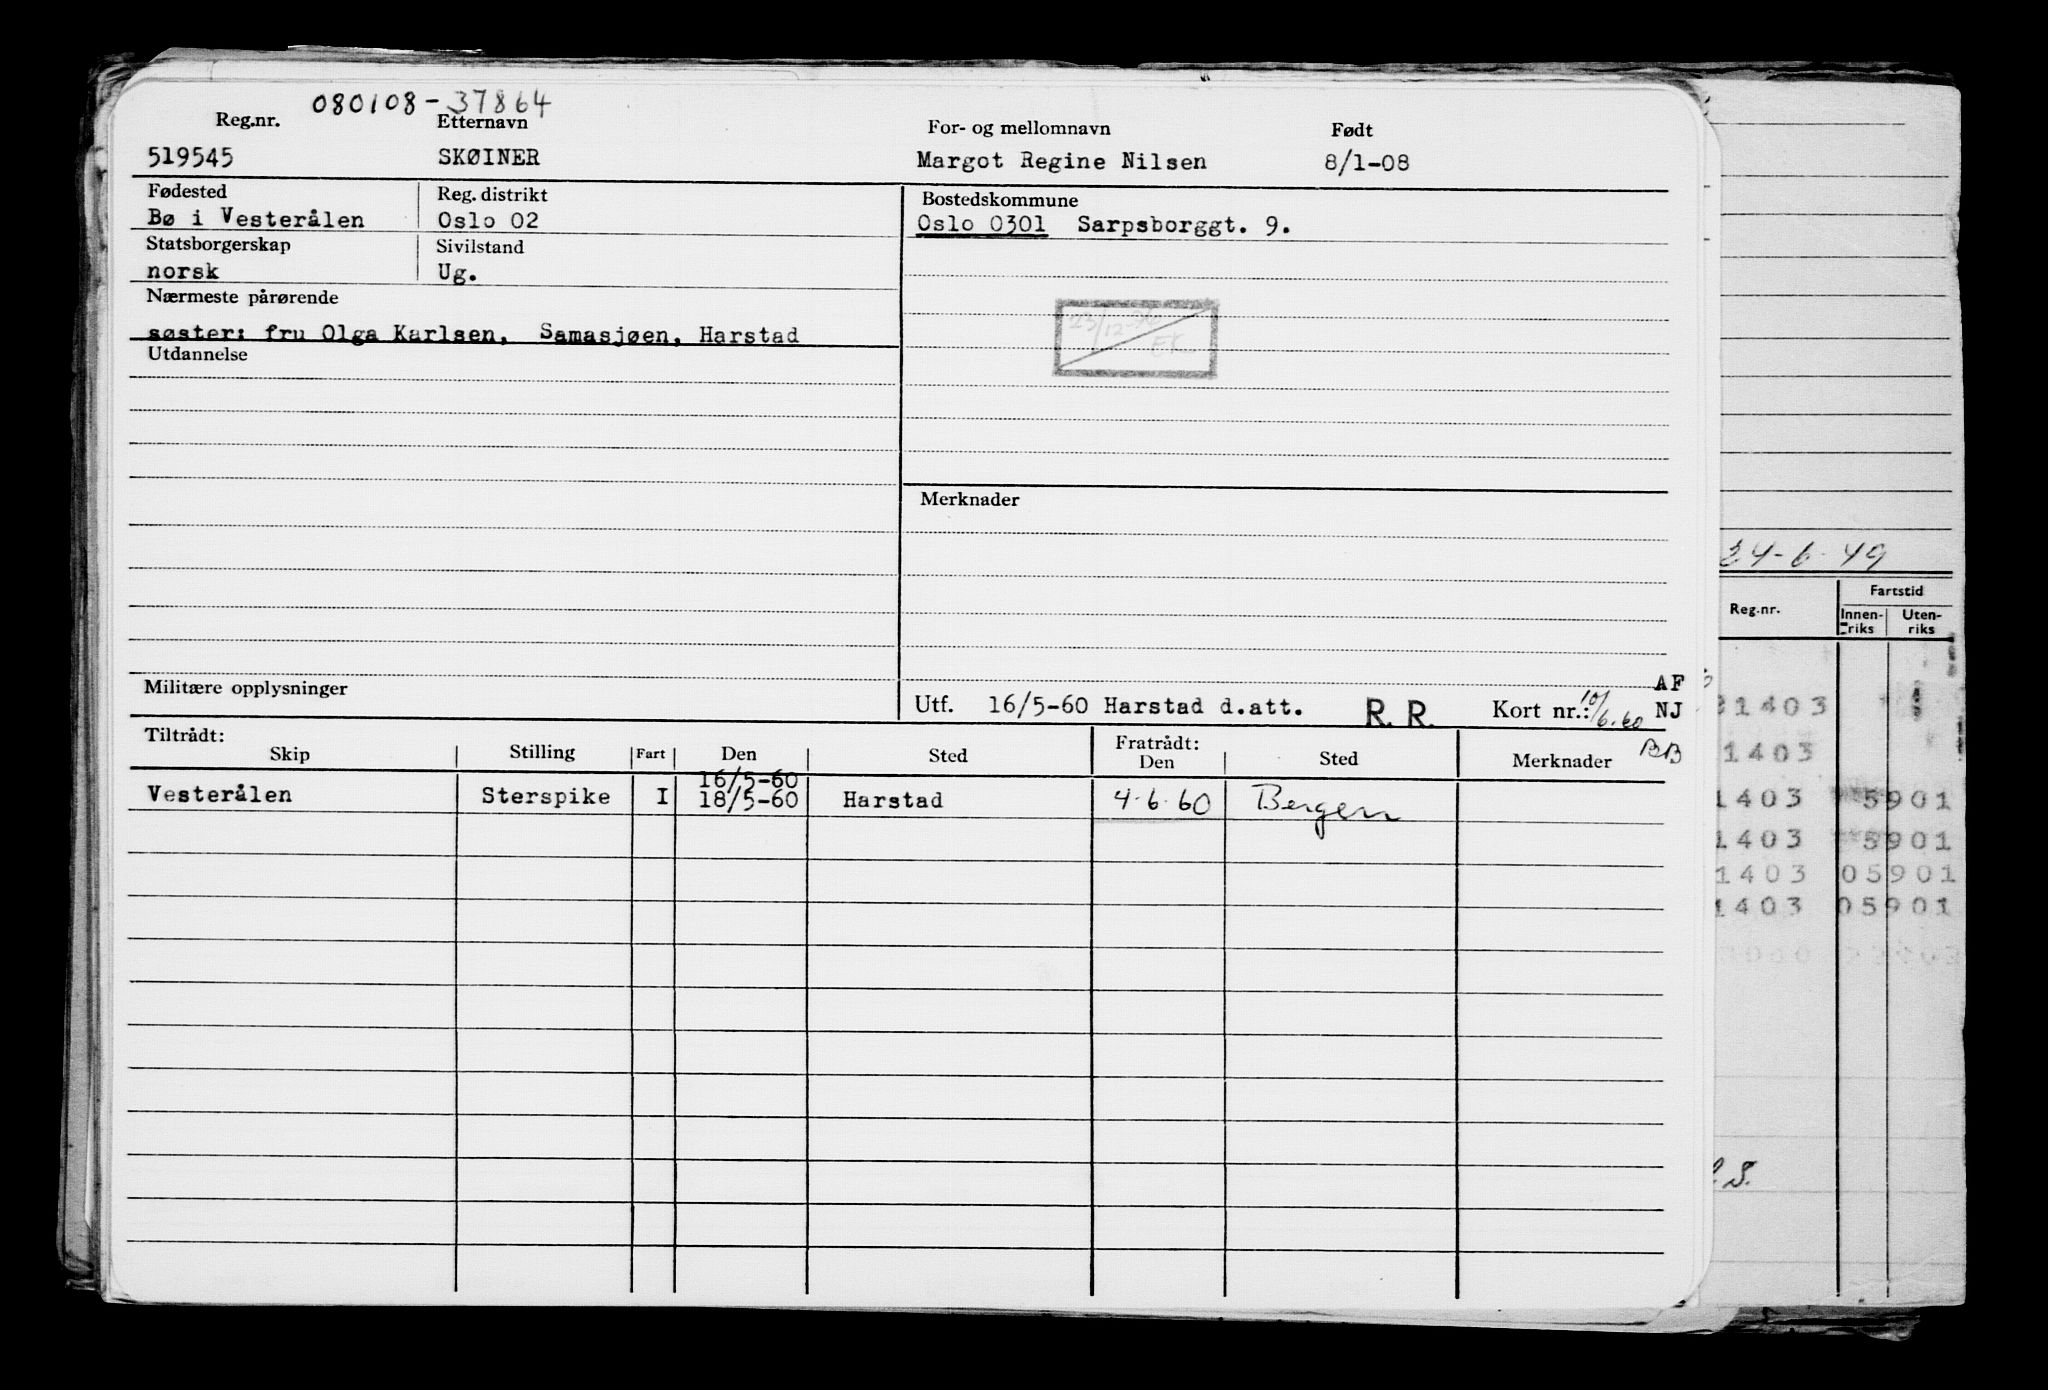 080108-37864
Reg.nr. Etternavn For- og mellomnavn Født
519545 SKØINER Margot Regine Nilsen 8/1-08
Fødested Reg. distrikt Bostedskommune
Bø i Vesterålen Oslo 02 Oslo 0301 Sarpsborggt. 9.
Statsborgerskap Sivilstand
norsk Ug.
Nærmeste pårørende
søster: fru Olga Karlsen, Samasjøen, Harstad
Utdannelse
Merknader
Militære opplysninger
AF
Utf. 16/5-60 Harstad d.att. R. R. Kort nr.: 10/6.60 NJ
BB
Tiltrådt: Fratrådt:
Skip Stilling Fart Den Sted Den Sted Merknader
16/5-60
Vesterålen Sterspike I 18/5-60 Harstad 4.6.60 Bergen
24-6-49
Fartstid
Reg.nr. Innen-riks Uten-riks
1403
1403
1403 5901
1403 5901
1403 05901
1403 05901